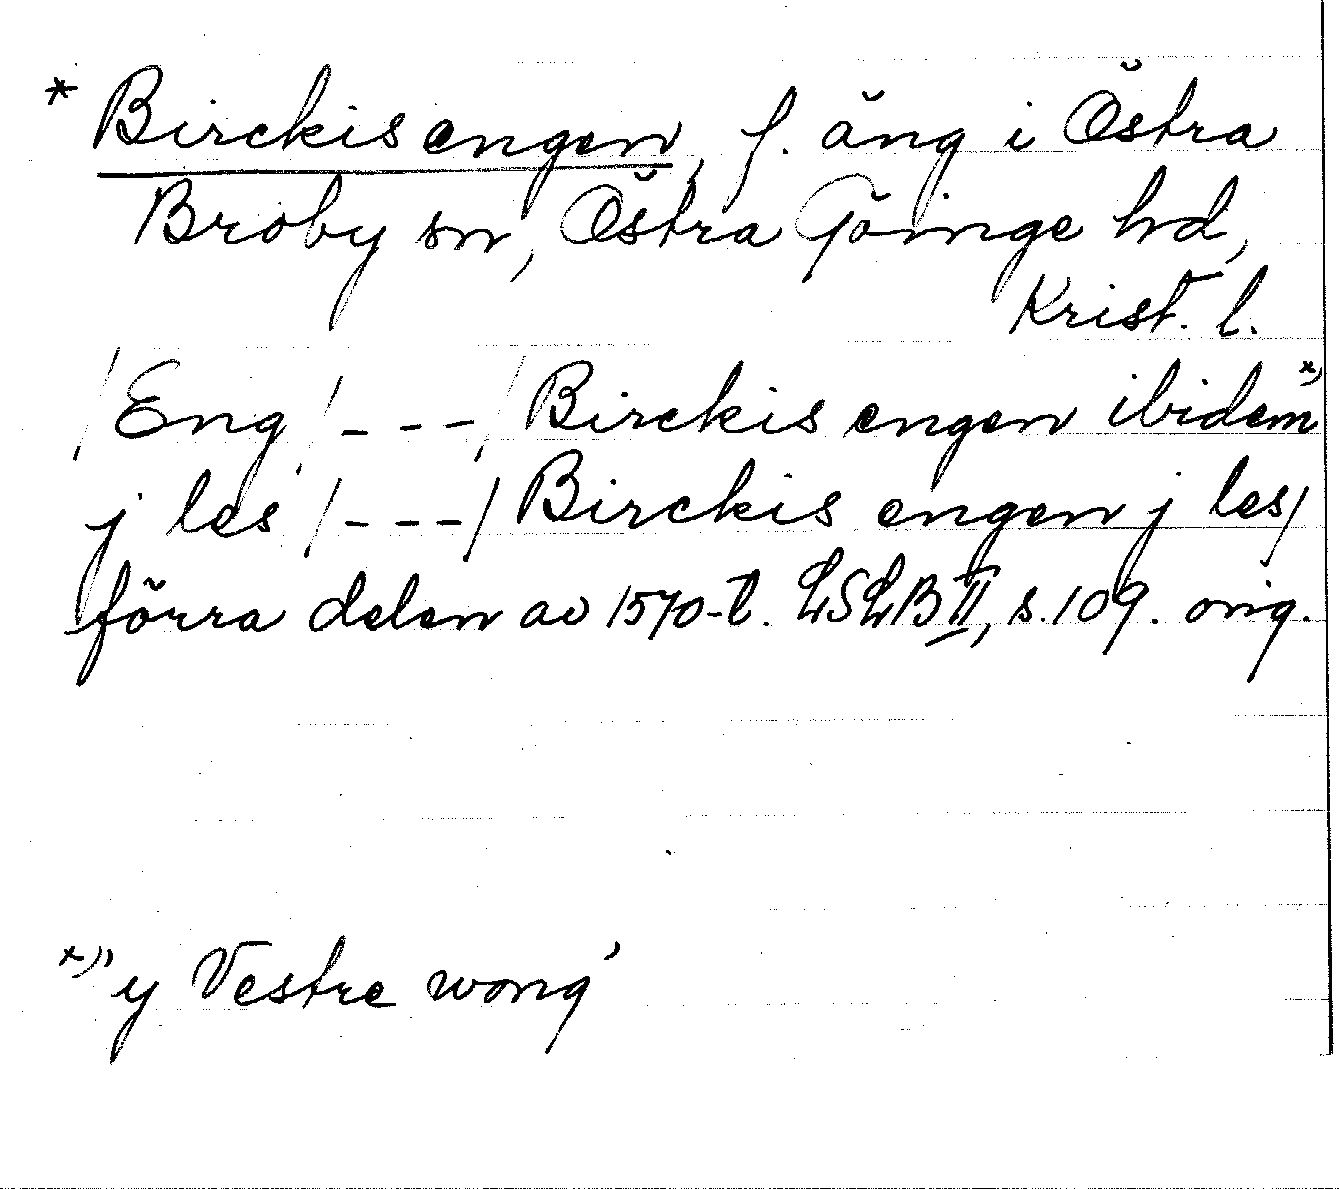 * Birckis engen, f. äng i Östra
Broby sn, Östra Göinge hd,
Krist. l.
/Eng /---/ Birckis engen ibidem *)
j les /---/ Birckis engen j les/
förra delen av 1570-t. LSLB II, s. 109. orig.
*) "y Vestre wong"